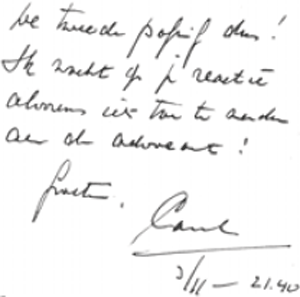 De tweede poging dus!
Ik wacht op je reactie
alvorens iets toe te zenden
aan de advocaat!
Groeten,
Carel
3/11 - 21.40